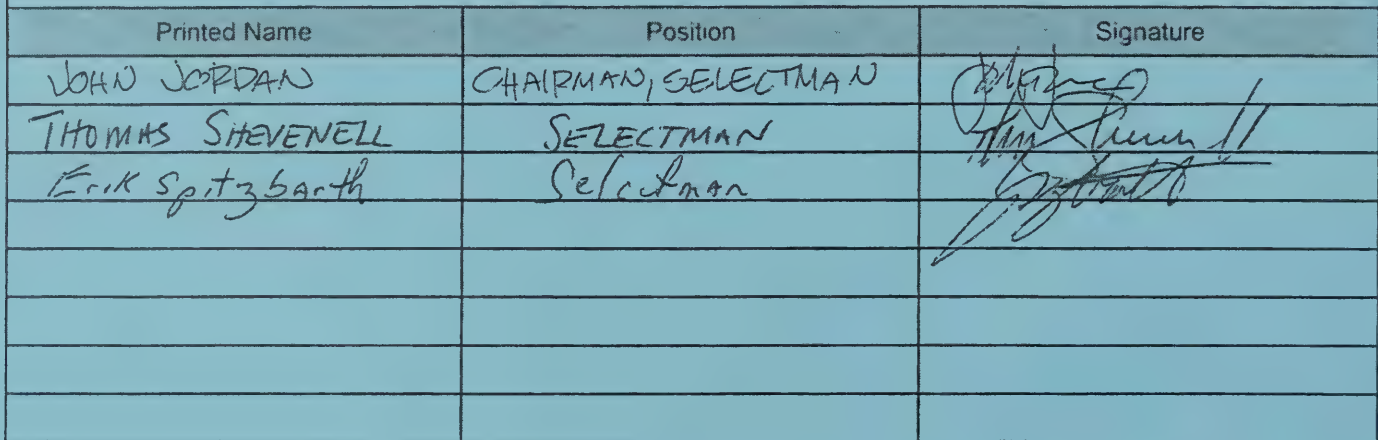 Printed Name Position Signature
JOHN JORDAN CHAIRMAN, SELECTMAN
THOMAS SHEVENELL SELECTMAN
Erik Spitzbarth Selctman